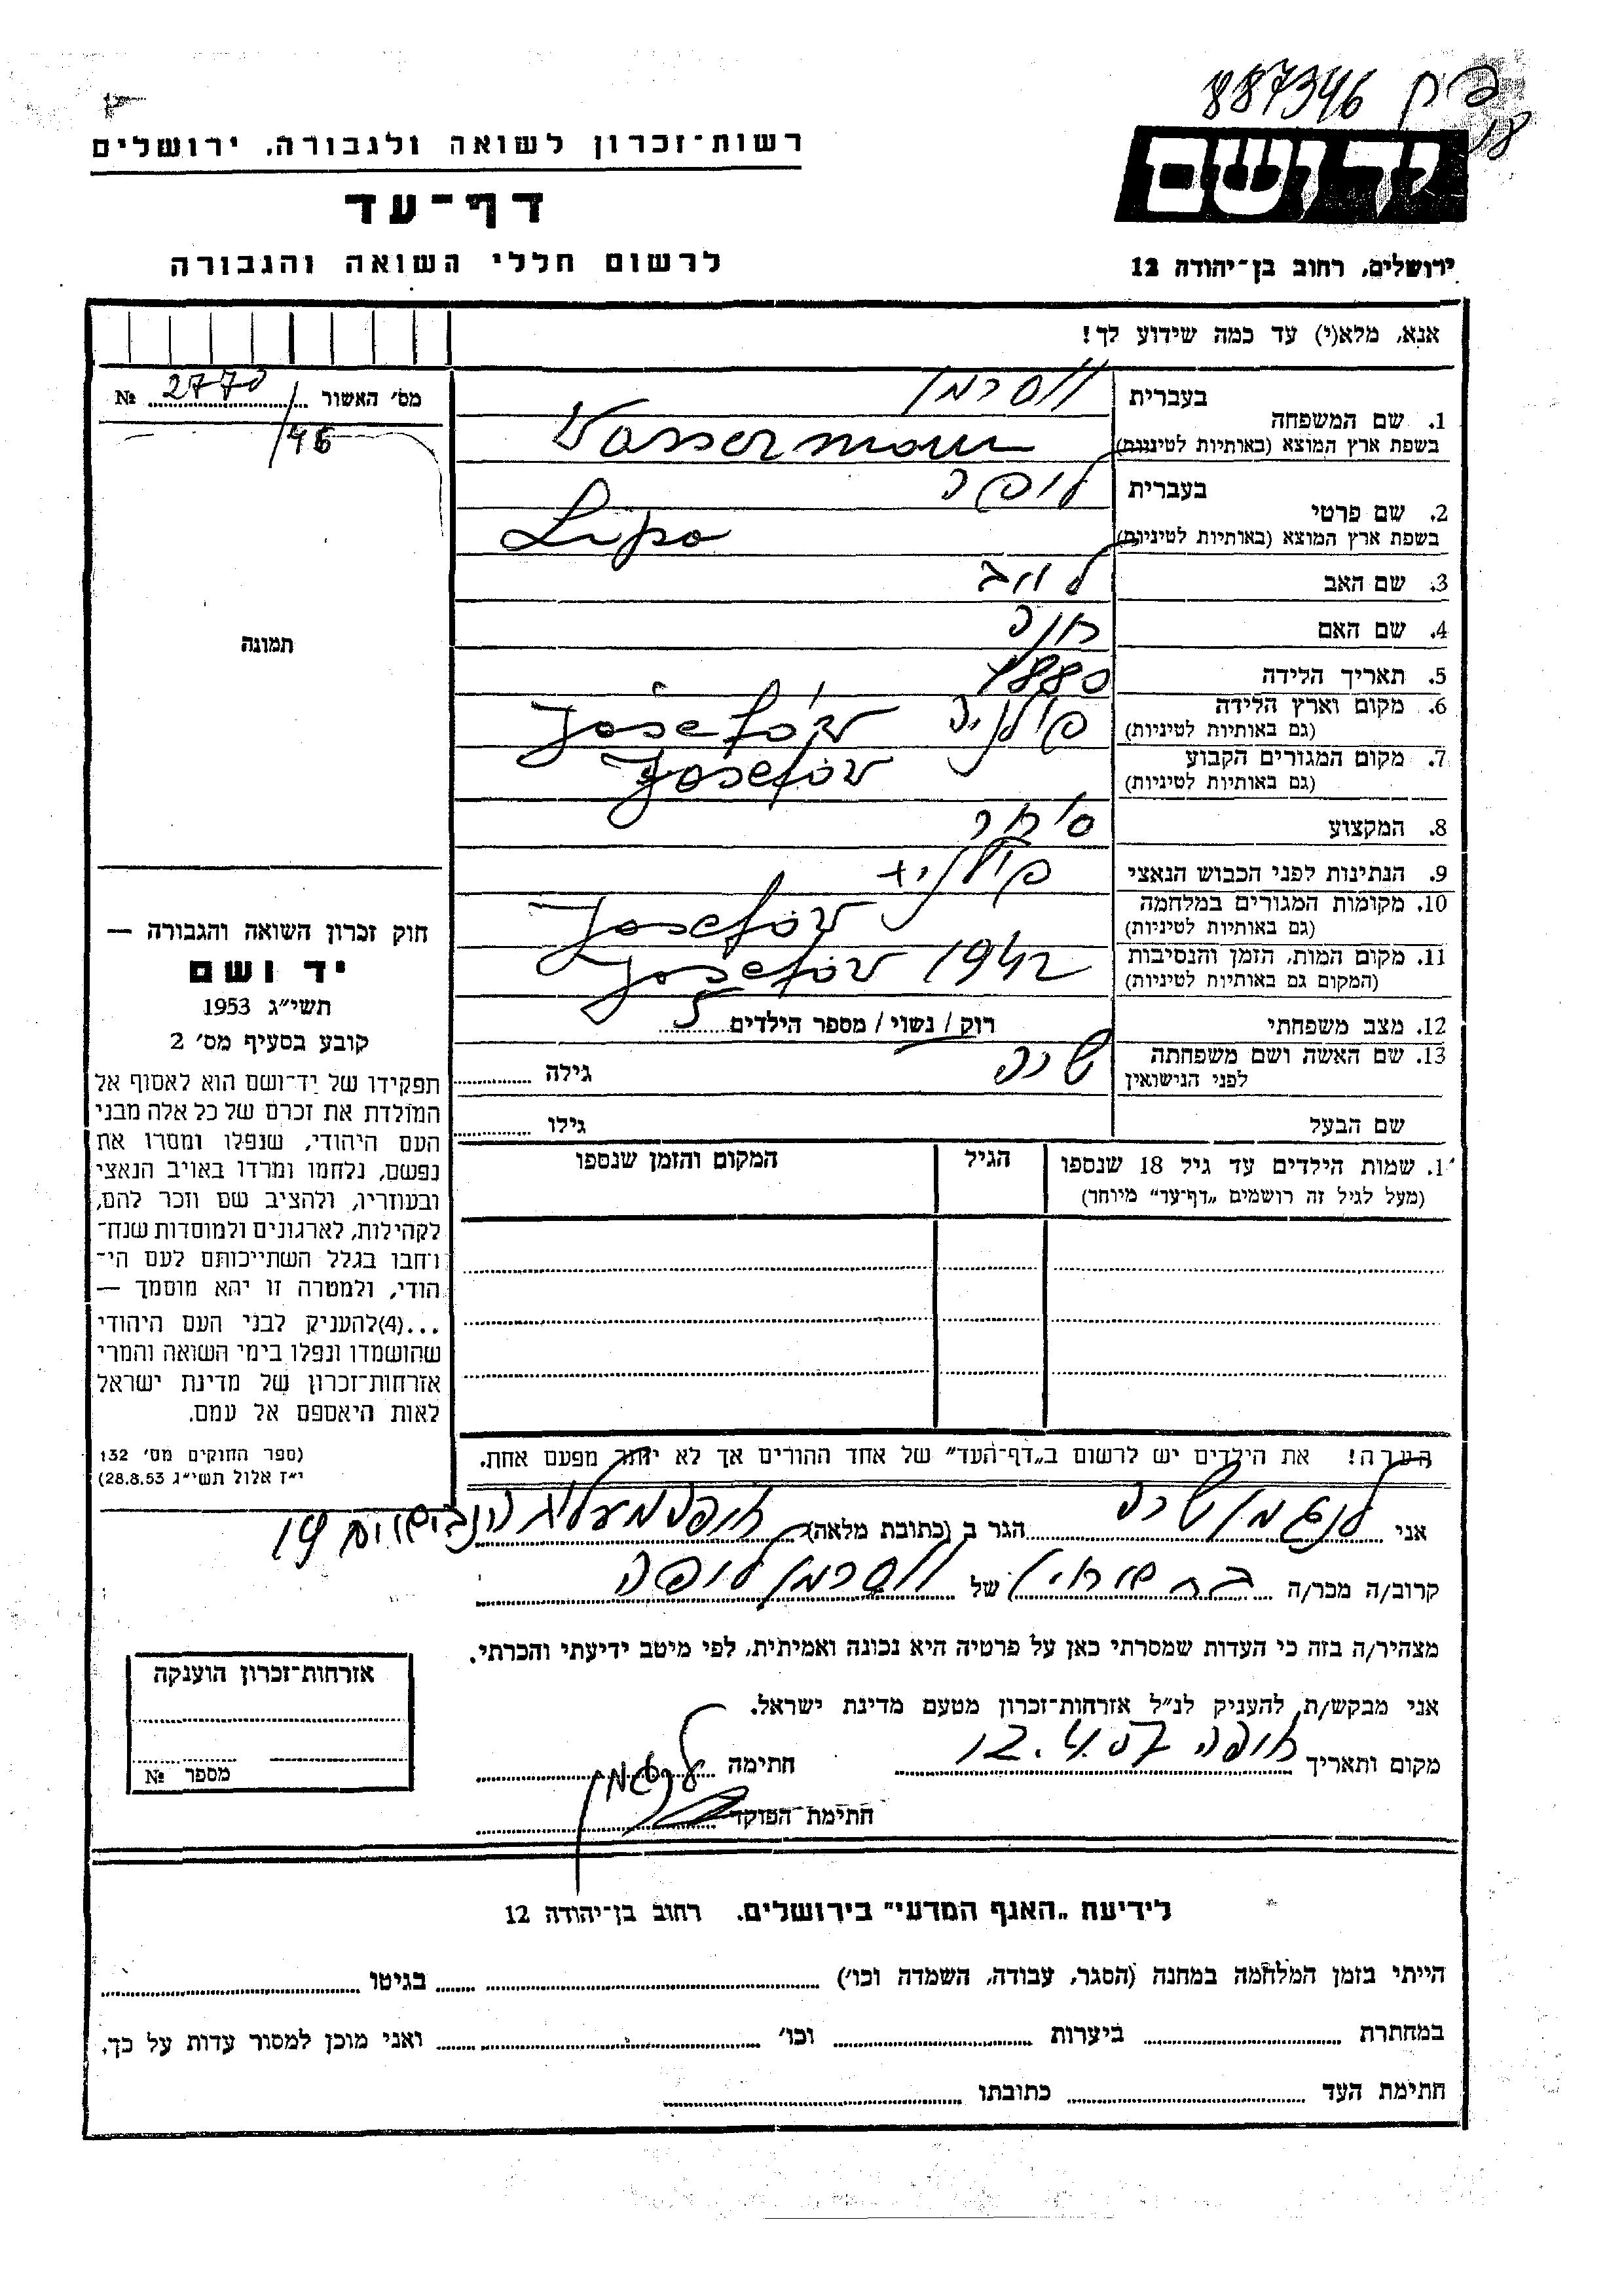 887346
רשות-זכרון לשואה ולגבורה, ירושלים
יד ושם
דף-עד
לרשום חללי השואה והגבורה
ירושלים, רחוב בן-יהודה 12
אנא, מלא(י) עד כמה שידוע לך!
מס' האשור № 2770
/46
תמונה
1. שם המשפחה
בעברית וסרמן
בשפת ארץ המוצא (באותיות לטיניות) Wasserman
2. שם פרטי
בעברית ליפה
בשפת ארץ המוצא (באותיות לטיניות) Lipo
3. שם האב
4. שם האם חנה
5. תאריך הלידה 1880
6. מקום וארץ הלידה (גם באותיות לטיניות) פולניה Josefów
7. מקום המגורים הקבוע (גם באותיות לטיניות) Josefów
8. המקצוע סוחר
9. הנתינות לפני הכבוש הנאצי פולנית
10. מקומות המגורים במלחמה (גם באותיות לטיניות) Josefów
11. מקום המות, הזמן והנסיבות (המקום גם באותיות לטיניות) Josefów 1942
12. מצב משפחתי רוק / נשוי / מספר הילדים 5
13. שם האשה ושם משפחתה לפני הנישואין שרה גילה
שם הבעל גילו
1. שמות הילדים עד גיל 18 שנספו הגיל המקום והזמן שנספו
(מעל לגיל זה רושמים „דף-עד" מיוחד)
חוק זכרון השואה והגבורה —
יד ושם
תשי"ג 1953
קובע בסעיף מס' 2
תפקידו של יד-ושם הוא לאסוף אל
המולדת את זכרם של כל אלה מבני
העם היהודי, שנפלו ומסרו את
נפשם, נלחמו ומרדו באויב הנאצי
ובעוזריו, ולהציב שם וזכר להם,
לקהילות, לארגונים ולמוסדות שנח-
רחבו בגלל השתייכותם לעם הי-
הודי, ולמטרה זו יהא מוסמך —
...(4)להעניק לבני העם היהודי
שהושמדו ונפלו בימי השואה והמרי
אזרחות-זכרון של מדינת ישראל
לאות היאספם אל עמם.
(ספר החוקים מס' 132
י"ז אלול תשי"ג 28.8.53)
הערה! את הילדים יש לרשום ב„דף-העד" של אחד ההורים אך לא יותר מפעם אחת.
אני שרה הגר ב (כתובת מלאה) חיפה 19
קרוב/ה מכר/ה של וסרמן ליפה
מצהיר/ה בזה כי העדות שמסרתי כאן על פרטיה היא נכונה ואמיתית, לפי מיטב ידיעתי והכרתי.
אני מבקש/ת להעניק לנ"ל אזרחות-זכרון מטעם מדינת ישראל.
מקום ותאריך חיפה 12.4.57 חתימה
חתימת הפוקד
אזרחות-זכרון הוענקה
מספר №
לידיעת „האגף המדעי" בירושלים, רחוב בן-יהודה 12
הייתי בזמן המלחמה במחנה (הסגר, עבודה, השמדה וכו') בגיטו
במחתרת ביערות וכו' ואני מוכן למסור עדות על כך,
חתימת העד כתובתו